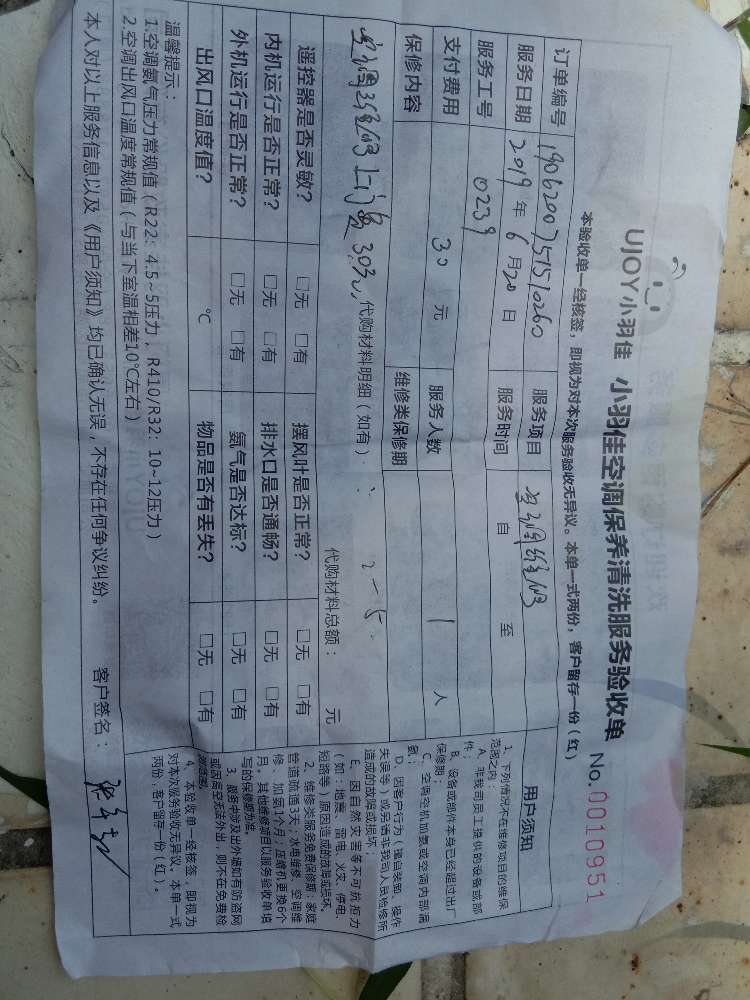 UJOY小羽佳 小羽佳空调保养清洗服务验收单 No.0010951
本验收单一经核签，即视为对本次服务验收无异议。本单一式两份，客户留存一份（红）
订单编号 1906200751510260 服务项目
服务日期 2019年6月20日 服务时间 自 至
服务工号 0239
支付费用 30 元 服务人数 1 人
保修内容 维修类保修期
303 代购材料明细（如有）： 代购材料总额： 元
遥控器是否灵敏？ □无 □有 摆风叶是否正常？ □无 □有
内机运行是否正常？ □无 □有 排水口是否通畅？ □无 □有
外机运行是否正常？ □无 □有 氨气是否达标？ □无 □有
出风口温度值？ ℃ 物品是否有丢失？ □无 □有
温馨提示：
1.空调氨气压力常规值（R22：4.5~5压力，R410/R32：10-12压力）
2.空调出风口温度常规值（与当下室温相差10℃左右）
本人对以上服务信息以及《用户须知》均已确认无误，不存在任何争议纠纷。 客户签名：
用户须知
1、下列情况不在维修项目的维保
范围之内：
A、非我司员工提供的设备或部
件；
B、设备或部件本身已经超过出厂
保修期；
C、空调空机加氨或空调内部漏
氨；
D、因客户行为（擅自装卸、操作
失误等）或另请非我司人员检修所
造成的故障或损坏；
E、因自然灾害等不可抗拒力
（如：地震、雷电、火灾、停电、
短路等）原因造成的故障或损坏。
2、维修类服务免费保修期：家庭
管道疏通3天；水电维修、空调维
修、加氨1个月；压缩机更换6个
月，其他维修项目以服务验收单填
写的保修期为准。
3、服务中涉及出外墙如有防盗网
或因高空无法外出，则不在免费检
4、本验收单一经核签，即视为
对本次服务验收无异议。本单一式
两份，客户留存一份（红）。